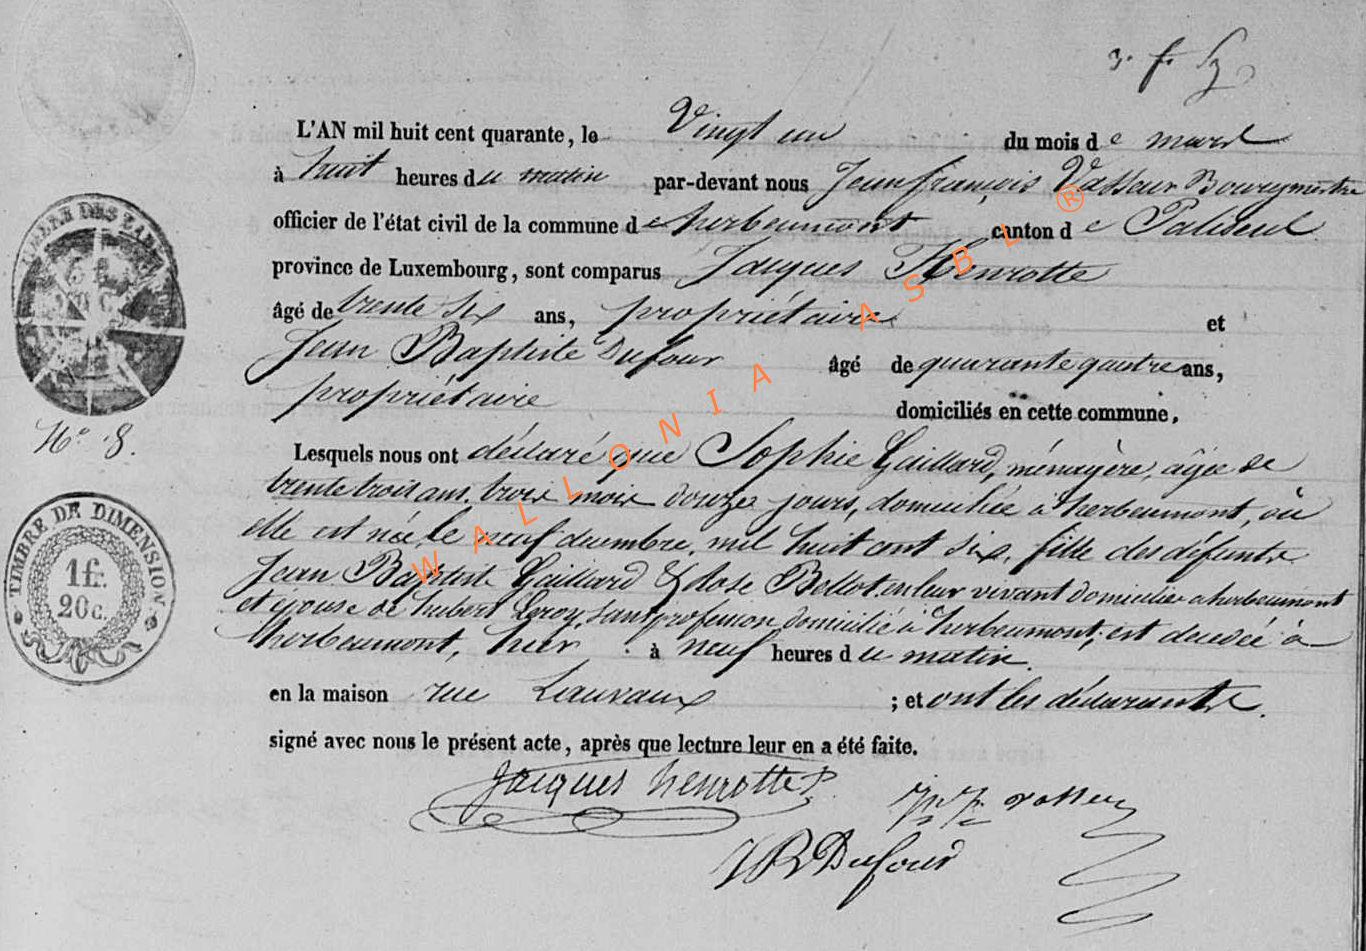 3. f.
L'AN mil huit cent quarante, le Vingt un du mois de mars
à huit heures du matin par-devant nous Jean françois Vasseur Bourgmestre
officier de l'état civil de la commune de herbeumont canton de Paliseul
province de Luxembourg, sont comparus Jacques Henrotte
âgé de trente six ans, propriétaire et
Jean Baptiste Dufour âgé de quarante quatre ans,
propriétaire domiciliés en cette commune,
N° 8.
Lesquels nous ont déclaré que Sophie Gaillard, ménagère, agée de
trente trois ans, trois mois douze jours, domiciliée à herbeumont, où
elle est née, le neuf decembre, mil huit cent six, fille des défunts
Jean Baptiste Gaillard & Rose Bellot en leur vivant domiciliés a herbeumont
et épouse de hubert Leroy, sans profession domicilié à herbeumont, est decedée à
herbeumont, hier à neuf heures du matin.
en la maison rue Lauvaux ; et ont les déclarants
signé avec nous le présent acte, après que lecture leur en a été faite.
Jacques henrotte
JF Vasseur
JB Dufour
TIMBRE DE DIMENSION
1 fr.
20 c.
WALLONIA ASBL ®